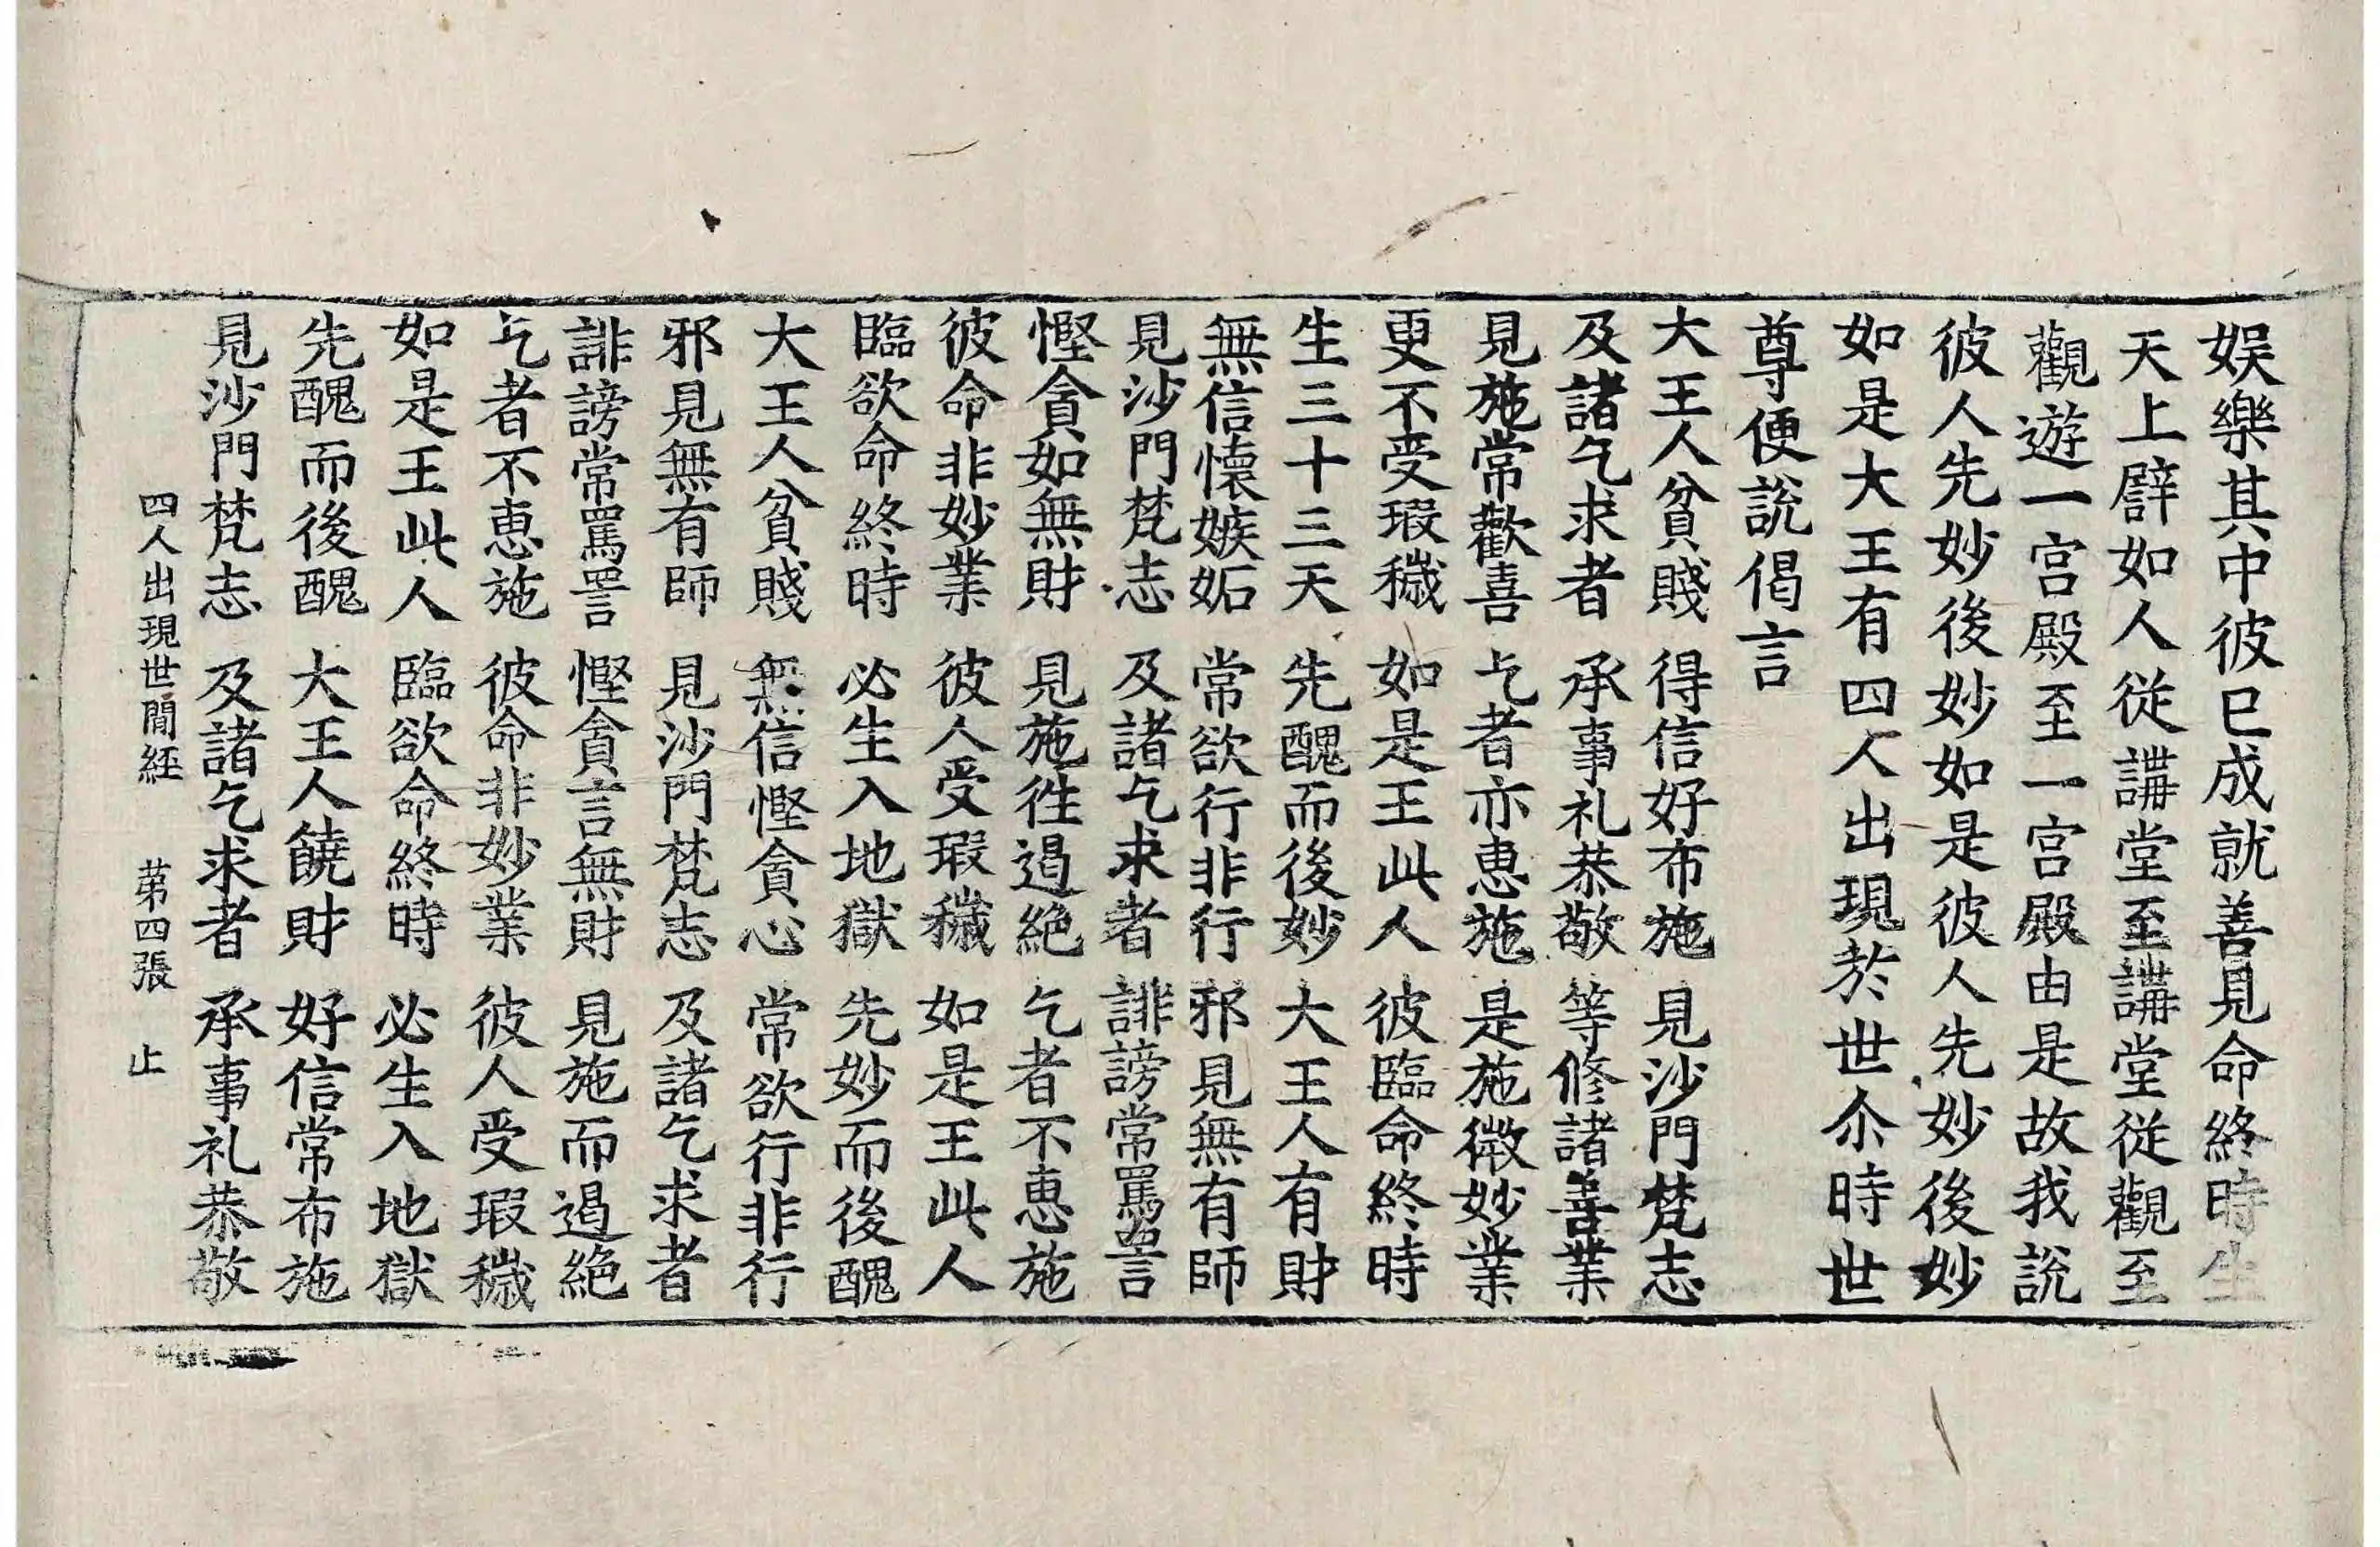 娯樂其中彼已成就善見命終時生
天上譬如人從講堂至講堂從觀至
觀遊一宮殿至一宮殿由是故我說
彼人先妙後妙如是彼人先妙後妙
如是大王有四人出現於世尒時世
尊便說偈言
大王人貧賤　得信好布施　見沙門梵志
及諸乞求者　承事礼恭敬　等修諸善業
見施常歡喜　乞者亦惠施　是施微妙業
更不受瑕穢　如是王此人　彼臨命終時
生三十三天　先醜而後妙　大王人有財
無信懷嫉妬　常欲行非行　邪見無有師
見沙門梵志　及諸乞求者　誹謗常罵詈
慳貪如無財　見施徃遏絶　乞者不惠施
彼命非妙業　彼人受瑕穢　如是王此人
臨欲命終時　必生入地獄　先妙而後醜
大王人貧賤　無信慳貪心　常欲行非行
邪見無有師　見沙門梵志　及諸乞求者
誹謗常罵詈　慳貪言無財　見施而遏絶
乞者不惠施　彼命非妙業　彼人受瑕穢
如是王此人　臨欲命終時　必生入地獄
先醜而後醜　大王人饒財　好信常布施
見沙門梵志　及諸乞求者　承事礼恭敬
四人出現世閒經　苐四張　止